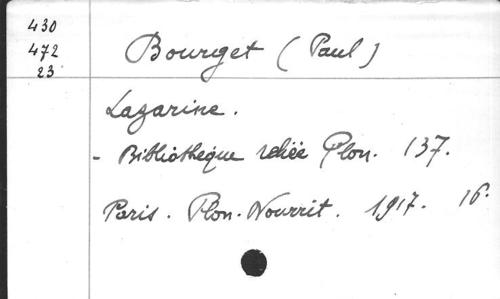 430
472
23
Bourget (Paul)
Lazarine.
- Bibliotheque reliée Plon. 137.
Paris. Plon-Nourrit. 1917. 16.